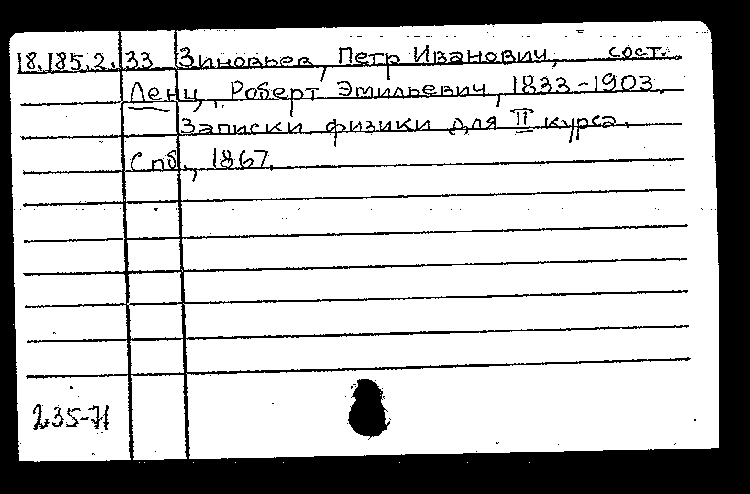 18.185.2.33 Зиновьев, Петр Иванович, сост.
Ленц, Роберт Эмильевич, 1833-1903.
Записки физики для II курса.
Спб., 1867.
235-71